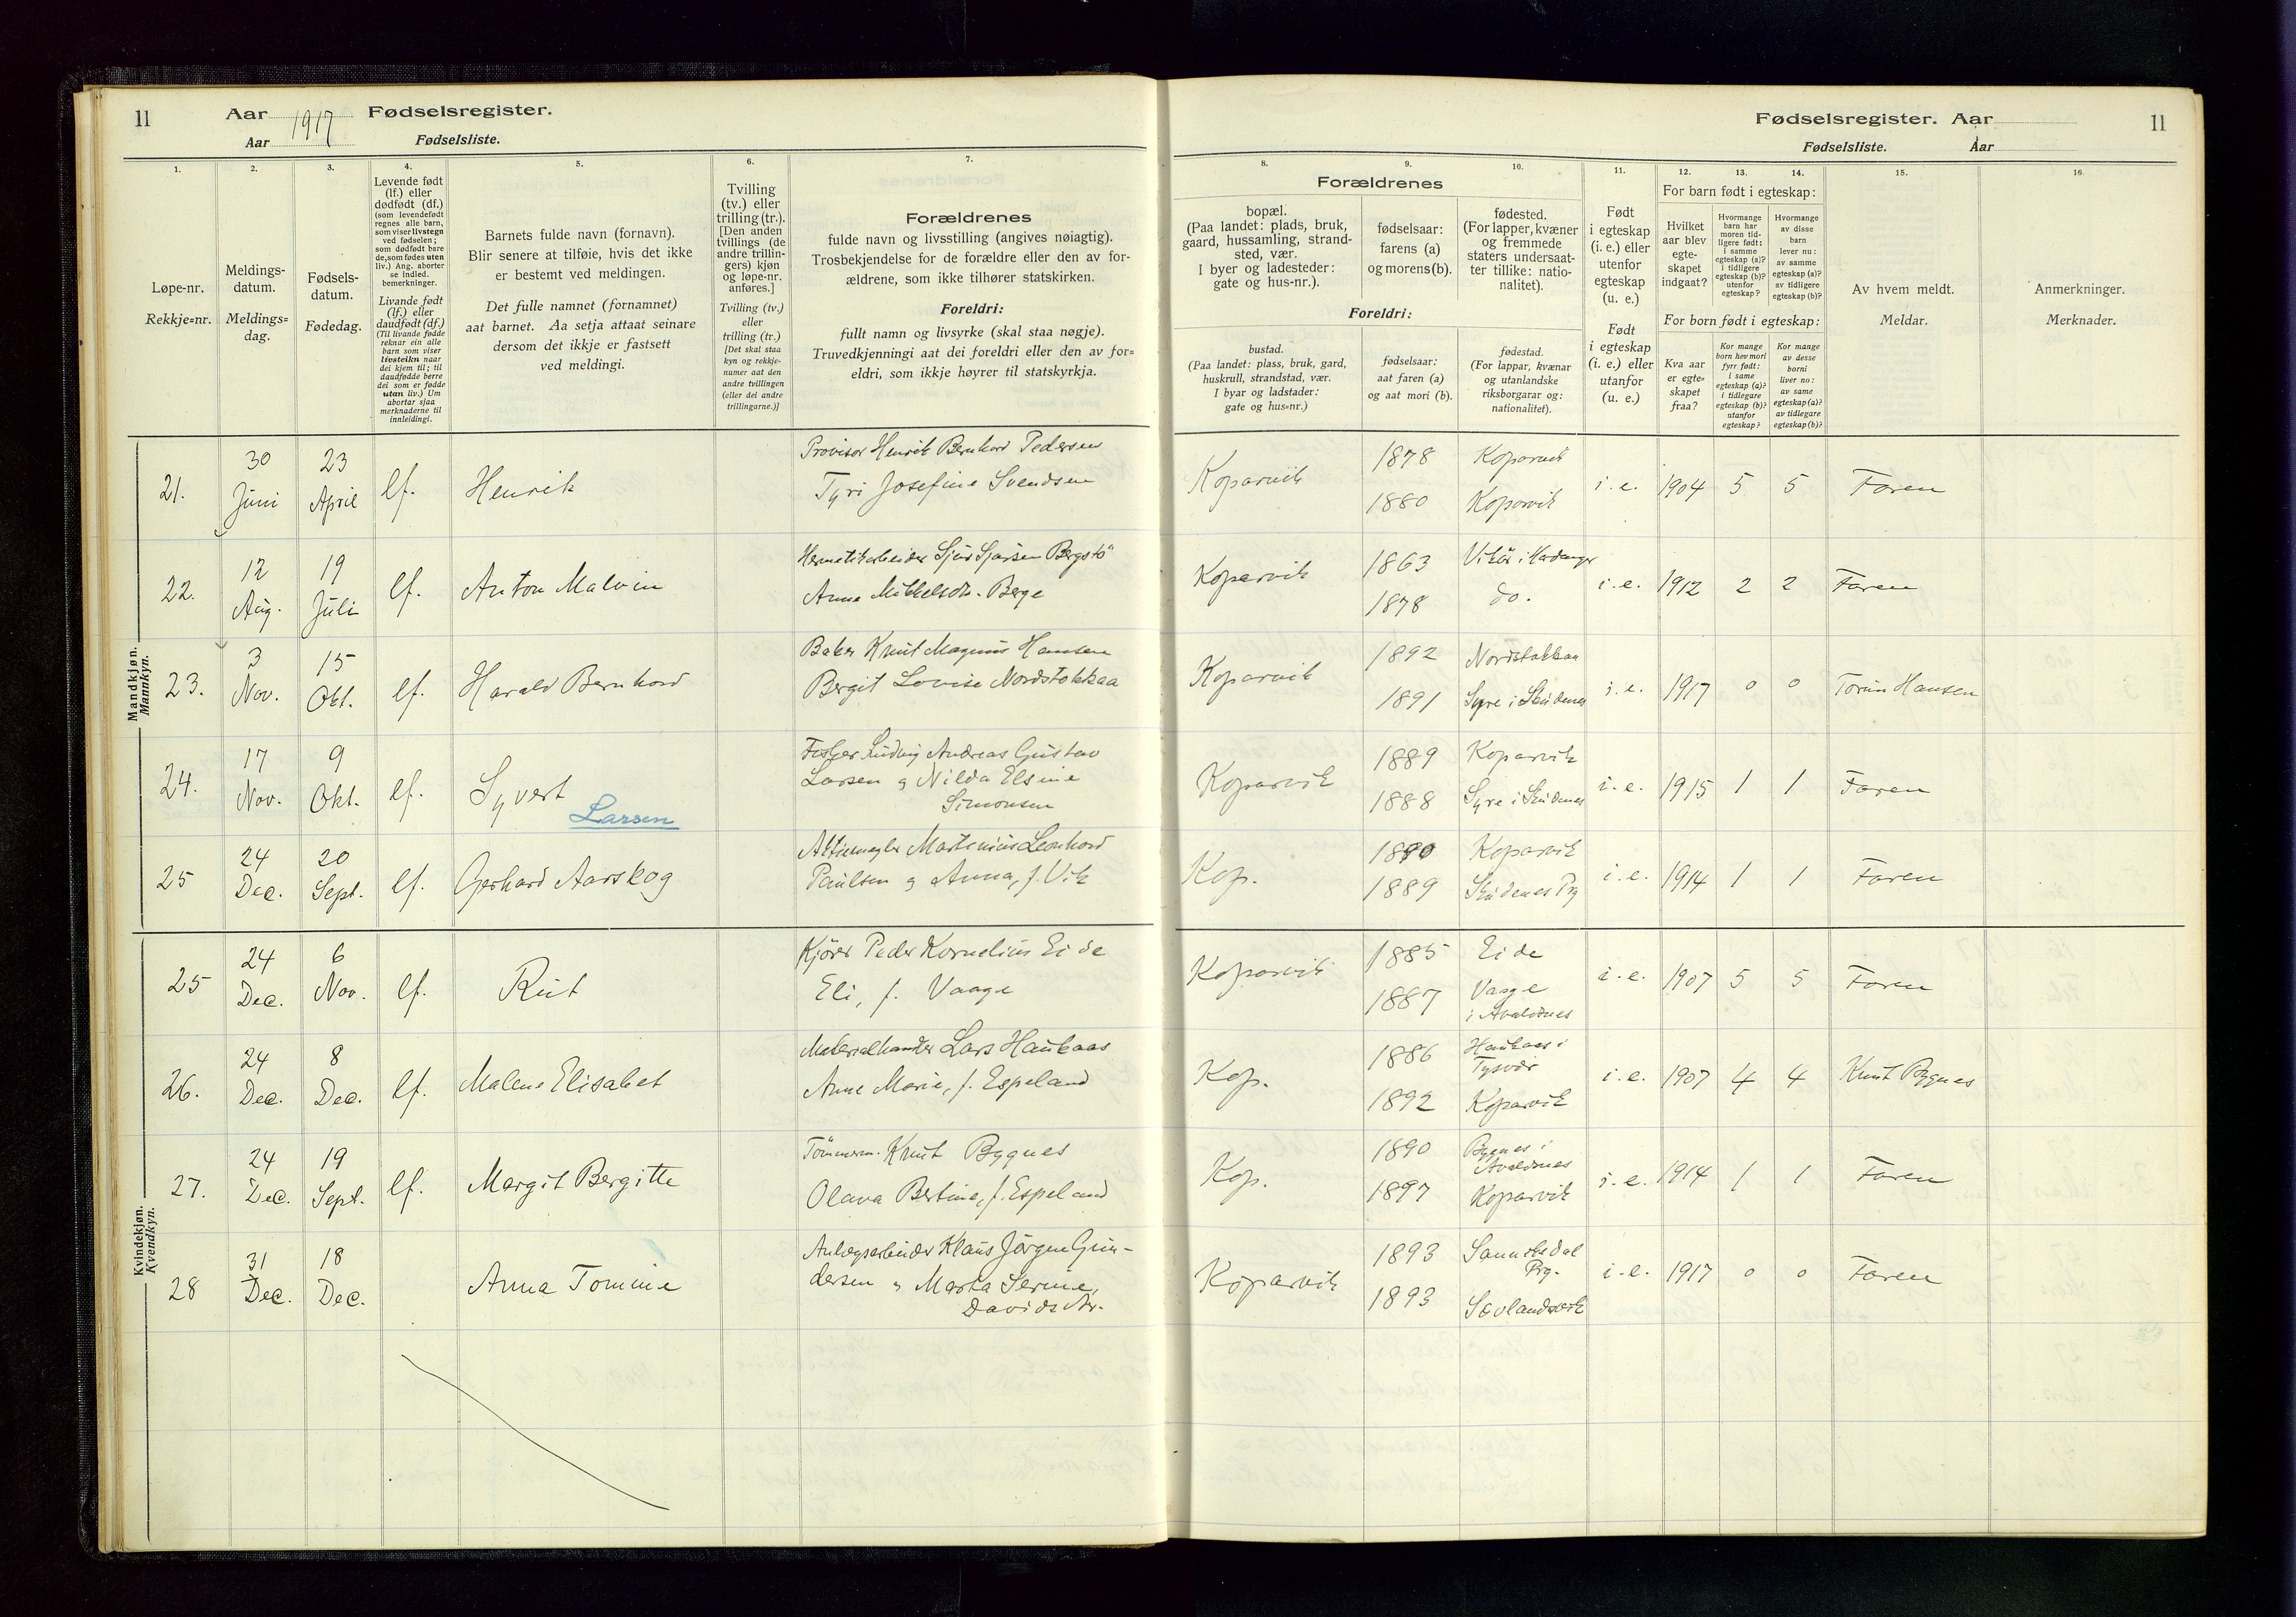 11
Aar 1917 Fødselsregister.
Aar Fødselsliste.
1.
2.
3.
4.
5.
6.
7.
Løpe-nr.
Rekkje=nr.
Meldings-
datum.
Meldings=
dag.
Fødsels-
datum.
Fødedag.
Levende født
(lf.) eller
dødfødt (df.)
(som levendefødt
regnes alle barn,
som viser livstegn
ved fødselen;
som dødfødt bare
de, som fødes uten
liv.) Ang. aborter
se indled.
bemerkninger.
Livande født
(lf.) eller
daudfødt (df.)
(Til livande fødde
reknar ein alle
barn som viser
livsteikn naar
dei kjem til; til
daudfødde berre
dei som er fødde
utan liv.) Um
abortar sjaa
merknaderne til
innleidingi.
Barnets fulde navn (fornavn).
Blir senere at tilføie, hvis det ikke
er bestemt ved meldingen.
Det fulle namnet (fornamnet)
aat barnet. Aa setja attaat seinare
dersom det ikkje er fastsett
ved meldingi.
Tvilling
(tv.) eller
trilling (tr.).
[Den anden
tvillings (de
andre trillin-
gers) kjøn
og løpe-nr.
anføres.]
Tvilling (tv.)
eller
trilling (tr.)
[Det skal staa
kyn og rekkje-
numer aat den
andre tvillingen
(eller dei andre
trillingarne.)]
Forældrenes
fulde navn og livsstilling (angives nøiagtig).
Trosbekjendelse for de forældre eller den av for-
ældrene, som ikke tilhører statskirken.
Foreldri:
fullt namn og livsyrke (skal staa nøgje).
Truvedkjenningi aat dei foreldri eller den av for=
eldri, som ikkje høyrer til statskyrkja.
Mandkjøn.
Mannkyn.
21. 30 Juni 23 April lf. Henrik
Provisor Henrik Bernhard Pedersen
Tyri Josefine Svendsen
22. 12 Aug. 19 Juli lf. Anton Malvin
Anne Mikkelsdtr. Berge
23. 3 Nov. 15 Okt. lf. Harald Bernhard
Baker Knut Magnus Hansen
Bergit Lovise Nordstokkaa
24. 17 Nov. 9 Okt. lf. Syvert
Larsen
Fisker Ludvig Andreas Gustav
Larsen og Nilda Elsine
Simonsen
25 24 Dec. 20 Sept. lf. Gerhard Aarskog
Martinius Leonhard
Paulsen og Anna, f. Vik
Kvindekjøn.
Kvendkyn.
25 24 Dec. 6 Nov. lf. Rut
Kjører Peder Kornelius Eide
Eli, f. Vaage
26. 24 Dec. 8 Dec. lf. Malene Elisabet
Materialhandler Lars Haukaas
Anne Marie, f. Espeland
27. 24 Dec. 19 Sept. lf. Margit Bergitte
Tømmerm. Knut Bygnes
Olava Bertine, f. Espeland
28 31 Dec. 18 Dec. Anna Tomine
Anlægsarbeider Klaus Jørgen Gun-
dersen og Marta Serine,
Davidsdtr.
Fødselsregister. Aar 11
Fødselsliste. Aar
8.
9.
10.
11.
12.
13.
14.
15.
16.
Forældrenes
bopæl.
(Paa landet: plads, bruk,
gaard, hussamling, strand-
sted, vær.
I byer og ladesteder:
gate og hus-nr.).
fødselsaar:
farens (a)
og morens (b).
fødested.
(For lapper, kvæner
og fremmede
staters undersaat-
ter tillike: natio-
nalitet).
Foreldri:
bustad.
(Paa landet: plass, bruk, gard,
huskrull, strandstad, vær.
I byar og ladstader:
gate og hus=nr.)
fødselsaar:
aat faren (a)
og aat mori (b).
fødestad.
(For lappar, kvænar
og utanlandske
riksborgarar og:
nationalitet).
Født
i egteskap
(i. e.) eller
utenfor
egteskap
(u. e.)
Født
i egteskap
(i. e.) eller
utanfor
(u. e.)
For barn født i egteskap:
Hvilket
aar blev
egte-
skapet
indgaat?
Hvormange
barn har
moren tid-
ligere født:
i samme
egteskap (a)?
i tidligere
egteskap (b)?
utenfor
egteskap?
Hvormange
av disse
barn
lever nu:
av samme
egteskap (a)?
av tidligere
egteskap (b)?
For born født i egteskap:
Kva aar
er egte=
skapet
fraa?
Kor mange
born hev mori
fyrr født:
i same
egteskap (a)?
i tidlegare
egteskap (b)?
utanfor
egteskap?
Kor mange
av desse
borni
liver no:
av same
egteskap (a)?
av tidlegare
egteskap (b)?
Av hvem meldt.
Meldar.
Anmerkninger.
Merknader.
Koparvik 1878 Koparvik i. e. 1904 5 5 Faren
1880 Koparvik
Kopervik 1863 Vikør i Hardanger i. e. 1912 2 2 Faren
1878 do.
Koparvik 1892 Nordstokkaa i. e. 1917 0 0 Torun Hansen
1891 Syre i Skudenes
Koparvik 1889 Koparvik i. e. 1915 1 1 Faren
1888 Syre i Skudenes
Kop. 1890 Koparvik i. e. 1914 1 1 Faren
1889 Skudenes Prg
Koparvik 1885 Eide i. e. 1907 5 5 Faren
1887 Vaage
i Avaldnes
Kop. 1886 Haukaas i
Tysvær i. e. 1907 4 4 Knut Bygnes
1892 Koparvik
Kop. 1890 Bygnes i
Avaldnes i. e. 1914 1 1 Faren
1897 Koparvik
Koparvik 1893 Sannikedal
Prg. i. e. 1917 0 0 Faren
1893 Sævlandsvik